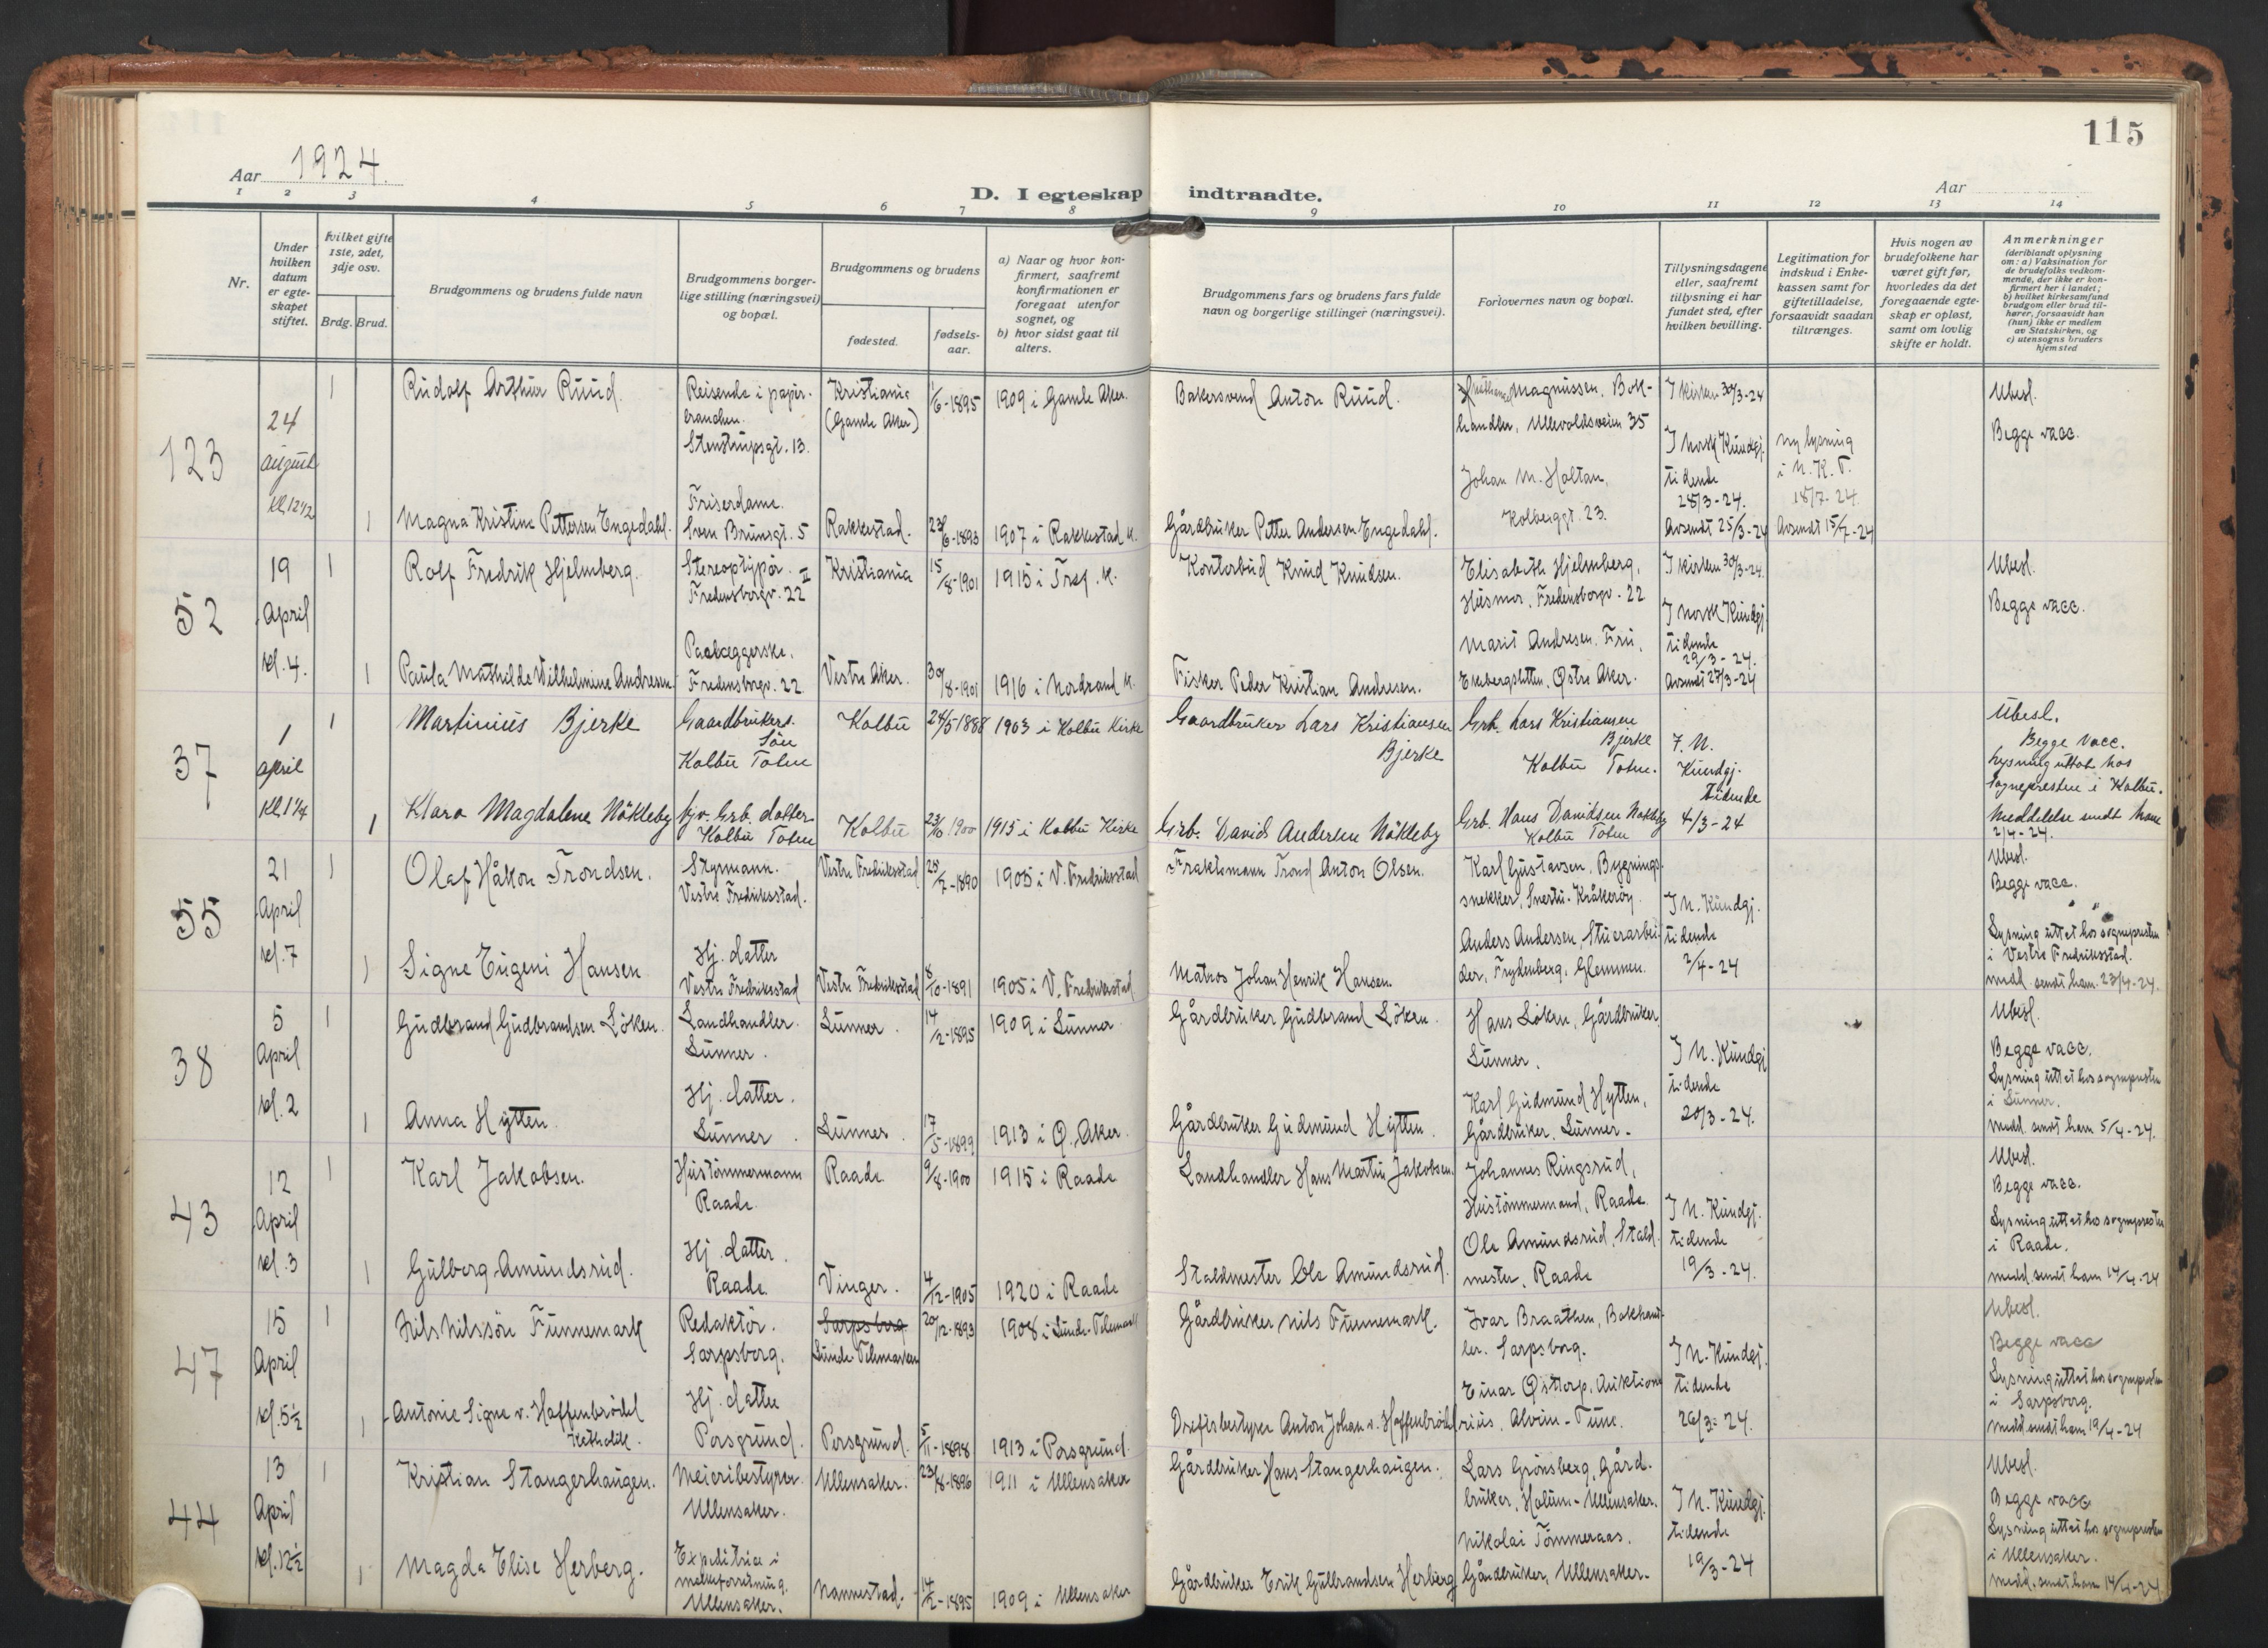 115
Aar 1924.
Aar
D. I egteskap indtraadte.
1 2 3 4 5 6 7 8 9 10 11 12 13 14
Nr.
Under hvilken datum er egteskapet stiftet.
hvilket gifte 1ste, 2det, 3dje osv.
Brdg. Brud.
Brudgommens og brudens fulde navn
Brudgommens borgerlige stilling (næringsvei) og bopæl.
Brudgommens og brudens
fødested.
fødselsaar.
a) Naar og hvor konfirmert, saafremt konfirmationen er foregaat utenfor sognet, og
b) hvor sidst gaat til alters.
Brudgommens fars og brudens fars fulde navn og borgerlige stillinger (næringsvei).
Forlovernes navn og bopæl.
Tillysningsdagene eller, saafremt tillysning ei har fundet sted, efter hvilken bevilling.
Legitimation for indskud i Enkekassen samt for giftetilladelse, forsaavidt saadan tiltrænges.
Hvis nogen av brudefolkene har været gift før, hvorledes da det foregaaende egteskap er opløst, samt om lovlig skifte er holdt.
Anmerkninger
(deriblandt oplysning om: a) Vaksination for de brudefolks vedkommende, der ikke er konfirmert her i landet; b) hvilket kirkesamfund brudgom eller brud tilhører, forsaavidt han (hun) ikke er medlem av Statskirken, og c) utensogns bruders hjemsted
123
24 august kl. 12 1/2
1 Rudolf Arthur Ruud.
Reisende i papirbranchen. Stenstrupsgt. 13.
Kristiania (Gamle Aker)
1/6-1895
1909 i Gamle Aker.
Bakersvend Anton Ruud.
Magnussen, Bokhandler, Ullevoldsveien 35
I kirken 30/3-24
I Norsk Kundgj. tidende 28/3-24.
Avsendt 25/3-24
ny lysning i N. K. T. 18/7-24.
Avsendt 15/7-24
Ubesl.
Begge vacc.
1 Magna Kristine Pettersen Engedahl.
Friserdame. Sven Brunsgt. 5
Rakkestad.
23/6-1893
1907 i Rakkestad k.
Gårdbruker Petter Andersen Engedahl.
Johan M. Holtan, Kolberggt. 23.
52
19 April kl. 4.
1 Rolf Fredrik Hjelmberg.
Stereotypør. Fredensborgv. 22 II
Kristiania
15/8-1901
1915 i Tref. k.
Kontorbud Knud Knudsen.
Elisabeth Hjelmberg, Husmor, Fredensborgv. 22
I kirken 30/3-24.
I Norsk Kundgj. tidende 29/3-24.
Avsendt 27/3-24
Ubesl.
Begge vacc.
1 Paula Mathilde Wilhelmine Andresen
Paalæggerske. Fredensborgv. 22
Vestre Aker.
30/8-1901
1916 i Nordrand k.
Fisker Peder Kristian Andresen.
Marit Andresen. Fru, Ekebergsletten, Østre Aker.
37
1 april kl. 1 1/4
1 Martinius Bjerke
Gaardbrukers. Søn Kolbu Toten
Kolbu
24/5 1888
1903 i Kolbu Kirke
Gaardbruker Lars Kristiansen Bjerke
Grb. Lars Kristiansen Bjerke Kolbu Toten.
I. N. Kundgj. tidende 4/3-24
Ubesl.
Begge vacc.
Lysning uttat hos sognepresten i Kolbu.
Meddelelse sendt ham 2/4-24.
1 Klara Magdalene Nökleby
hjv. Grb. datter Kolbu Toten
Kolbu
23/10 1900
1915 i Kolbu Kirke
Grb. David Andersen Nökleby
Grb. Hans Davidsen Nökleby Kolbu Toten
55
21 April kl. 7
1 Olaf Håkon Trondsen.
Styrmann. Vestre Fredriksstad.
Vestre Fredriksstad
25/7-1890
1905 i V. Fredriksstad
Fraktemann Trond Anton Olsen.
Karl Gustavsen, Bygningssnekker, Snertu-Kråkerøy.
I N. Kundgj. tidende 2/4-24
Ubesl.
Begge vacc.
Lysning uttat hos sognepresten i Vestre Fredriksstad.
medd. sendt ham. 23/4-24.
1 Signe Eugeni Hansen
Hj. datter Vestre Fredriksstad
Vestre Fredriksstad
8/10-1891
1905 i V. Fredriksstad.
Matros Johan Henrik Hansen.
Anders Andersen, Stuerarbeider, Frydenberg, Glemmen.
38
5 April kl. 2
1 Gudbrand Gudbrandsen Löken.
Landhandler. Lunner.
Lunner.
14/2-1895
1909 i Lunner.
Gårdbruker Gudbrand Löken.
Hans Löken, Gårdbruker, Lunner.
I N. Kundgj. tidende 20/3-24.
Ubesl.
Begge vacc.
Lysning uttat hos sognepresten i Lunner.
medd. sendt ham 5/4-24.
1 Anna Hytten.
Hj. datter. Lunner.
Lunner.
17/5-1899
1913 i Ø. Aker.
Gårdbruker Gudmund Hytten.
Karl Gudmund Hytten, Gårdbruker, Lunner.
43
12 April kl. 3
1 Karl Jakobsen.
Hustömmermann Raade.
Raade.
9/8-1900
1915 i Raade
Landhandler Hans Martin Jakobsen.
Johannes Ringsrud, Hustömmermand, Raade.
I N. Kundgj. tidende 19/3-24.
Ubesl.
Begge vacc.
Lysning uttat hos sognepresten i Raade.
medd. sendt ham 14/4-24
1 Gulborg Amundsrud.
Hj. datter. Raade.
Vinger.
4/12-1905
1920 i Raade
Staldmester Ole Amundsrud.
Ole Amundsrud, Staldmester, Raade
47
15 April kl. 5 1/2
1 Nils Nilssön Funnemark
Redaktör. Sarpsborg.
Sarpsborg Lunde Telemarken
20/12-1893
1908 i Lunde-Telemark
Gårdbruker Nils Funnemark.
Ivar Braathen, Bokhandler. Sarpsborg.
I N. Kundgj. tidende 26/3-24.
Ubesl.
Begge vacc
Lysning uttat hos sognepresten i Sarpsborg.
medd sendt ham 19/4-24
1 Antonie Signe v. Haffenbrödel Katholik.
Hj. datter Porsgrund.
Porsgrund.
5/11-1898
1913 i Porsgrund.
Driftsbestyrer Anton Johan v. Haffenbrödel
Einar Østtorp, Auktionarius, Alvim-Tune.
44
13 April kl. 12 1/2
1 Kristian Stangerhaugen.
Meieribestyrer. Ullensaker.
Ullensaker.
23/8-1896
1911 i Ullensaker
Gårdbruker Hans Stangerhaugen.
Lars Grönsberg, Gårdbruker, Holum-Ullensaker.
I N. Kundgj. tidende 19/3-24
Ubesl.
Begge vacc
Lysning uttat hos sognepresten i Ullensaker.
medd. sendt ham 14/4-24
1 Magda Elise Herberg.
Expeditrice i melkeforretning. Ullensaker.
Nannestad.
14/2-1895
1909 i Ullensaker
Gårdbruker Erik Gulbrandsen Herberg
Nikolai Tömmeraas. Gårdbruker, Ullensaker.